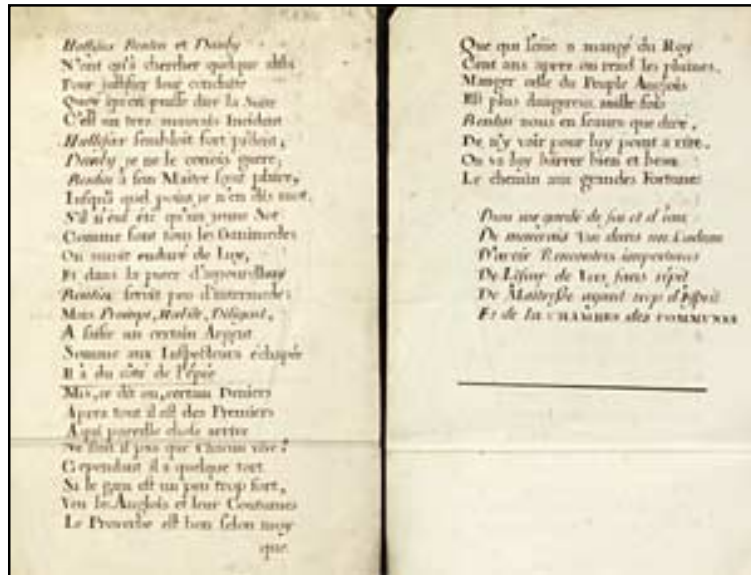 Hallifax Benten et Danby
N'ont qu'à chercher quelque
Pour justifier leur conduite
Quoy qu'en puisse dire la Suite
C'est un tres mauvais Incident
Hallifax sembloit fort
Danby je ne le conçois guere,
Benten à son Maitre sçeut plaire,
Jusqu'à quel point je n'en dis mot,
S'il n'eut été qu'un jeune Sot
Comme sont tous les Ganimedes
On auroit enduré de Luy,
Et dans la d'aujourdhuy
Benten serviit peu d'intermede;
Mais Prompt, Habile, Diligent,
A saisir un certain Argent
Somme aux Inspecteurs échapée
Il à du côté de l'épée
Mis, ce dit on, certain Deniers
Apres tout il est des Premiers
A qui pareille chose arrive
Ne faut il pas que Chacun vive?
Cependant il a quelque tort
Si le gain est un peu trop fort,
Veu les Anglois et leur Coutumes
Le Proverbe est bon selon moy
que
Que qui l'oüe a mangé du Roy
Cent ans apres en rend les plumes.
Manger celle du Peuple Anglois
Est plus dangereux mille fois
Benten nous en sçaura que dire,
De n'y voir pour luy point a rire,
On va luy barrer bien et beau
Le chemin aux grandes Fortunes
Dieu me garde de feu et d'eau
De mauvais Vin dans un Cadeau
D'avoir Rencontres importunes
De Liseur de Vers sans répit
De Maitresse ayant trop d'Esprit
Et de la CHAMBRE des COMMUNES